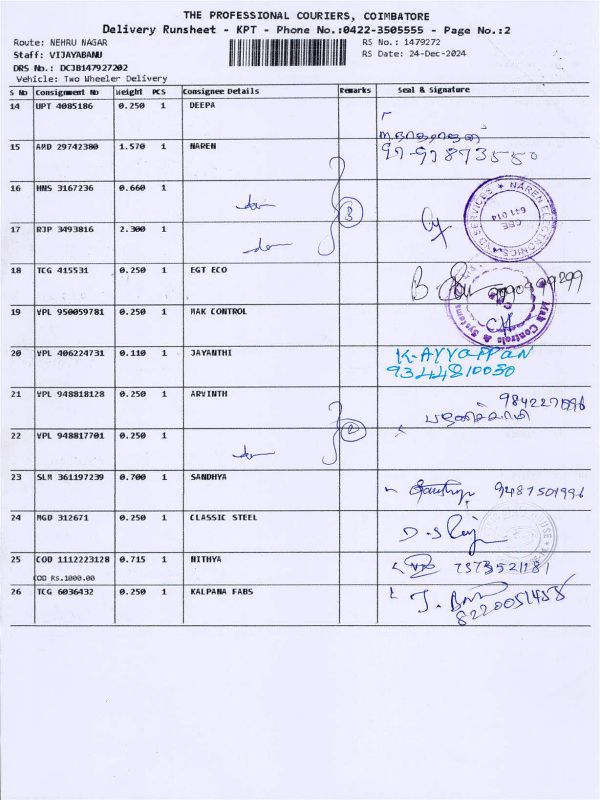 THE PROFESSIONAL COURIERS, COIMBATORE
Delivery Runsheet - KPT - Phone No.:0422-3505555 - Page No.:2
Route: NEHRU NAGAR RS No.: 1479272
Staff: VIJAYABANU RS Date: 24-Dec-2024
DRS No.: DCJB147927202
Vehicle: Two Wheeler Delivery
S No Consignment No Weight PCS Consignee Details Remarks Seal & Signature
14 UPT 4085186 0.250 1 DEEPA
15 AMD 29742380 1.570 1 NAREN
16 HNS 3167236 0.660 1
3
NAREN ELECTRONICS
CBE
641 014
17 RJP 3493816 2.300 1
18 TCG 415531 0.250 1 EGT ECO
19 VPL 950059781 0.250 1 MAK CONTROL
Mak Controls & Systems
20 VPL 406224731 0.110 1 JAYANTHI K. AYYAPPAN
9344810050
21 VPL 948818128 0.250 1 ARVINTH
2
22 VPL 948817701 0.250 1
23 SLM 361197239 0.700 1 SANDHYA 9487501996
24 MGD 312671 0.250 1 CLASSIC STEEL
25 COD 1112223128 0.715 1 NITHYA 7373521181
COD Rs.1000.00
26 TCG 6036432 0.250 1 KALPANA FABS
8220051458